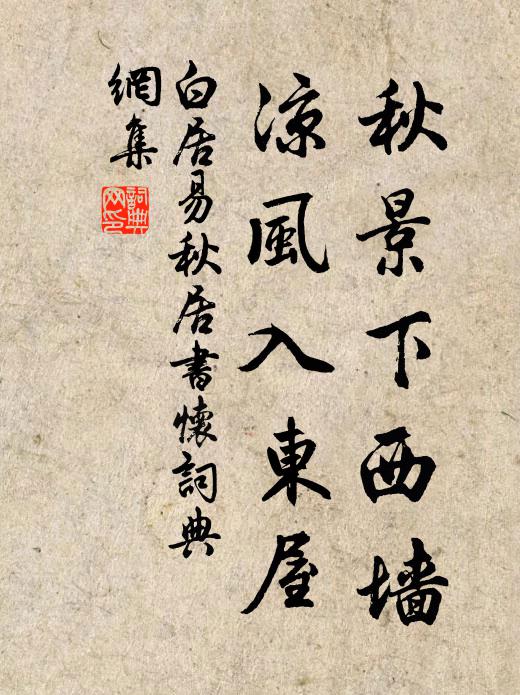 秋景下西墙
凉風入東屋
白居易秋居書懷詞典
網集
詞典
网印